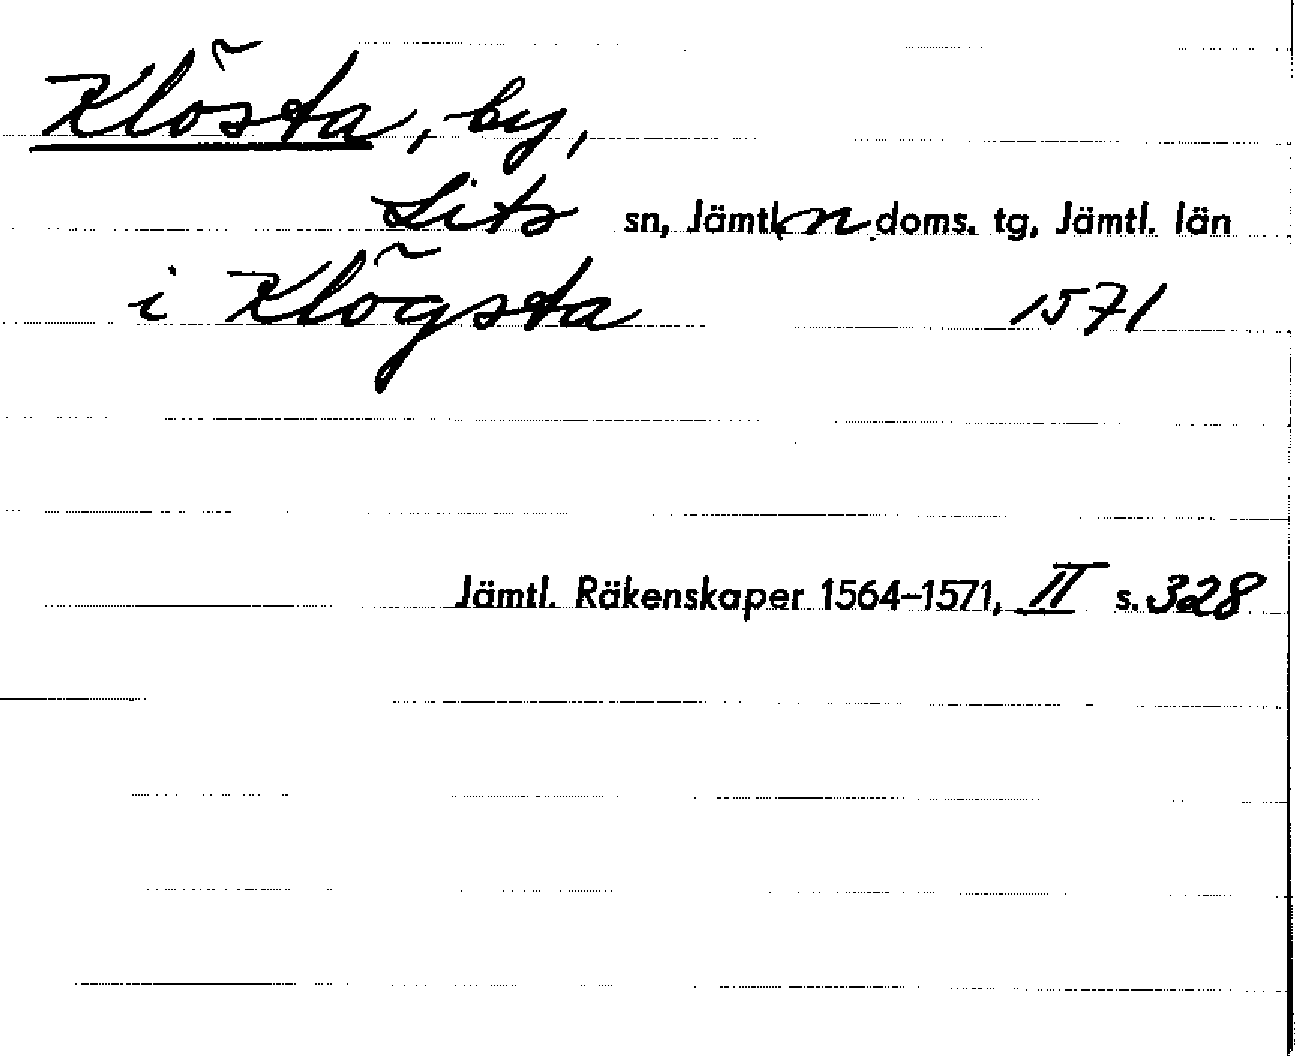 Klösta, by,
Lits sn, Jämtl. n doms. tg, Jämtl. län
i Klögsta 1571
Jämtl. Räkenskaper 1564–1571, II s. 328